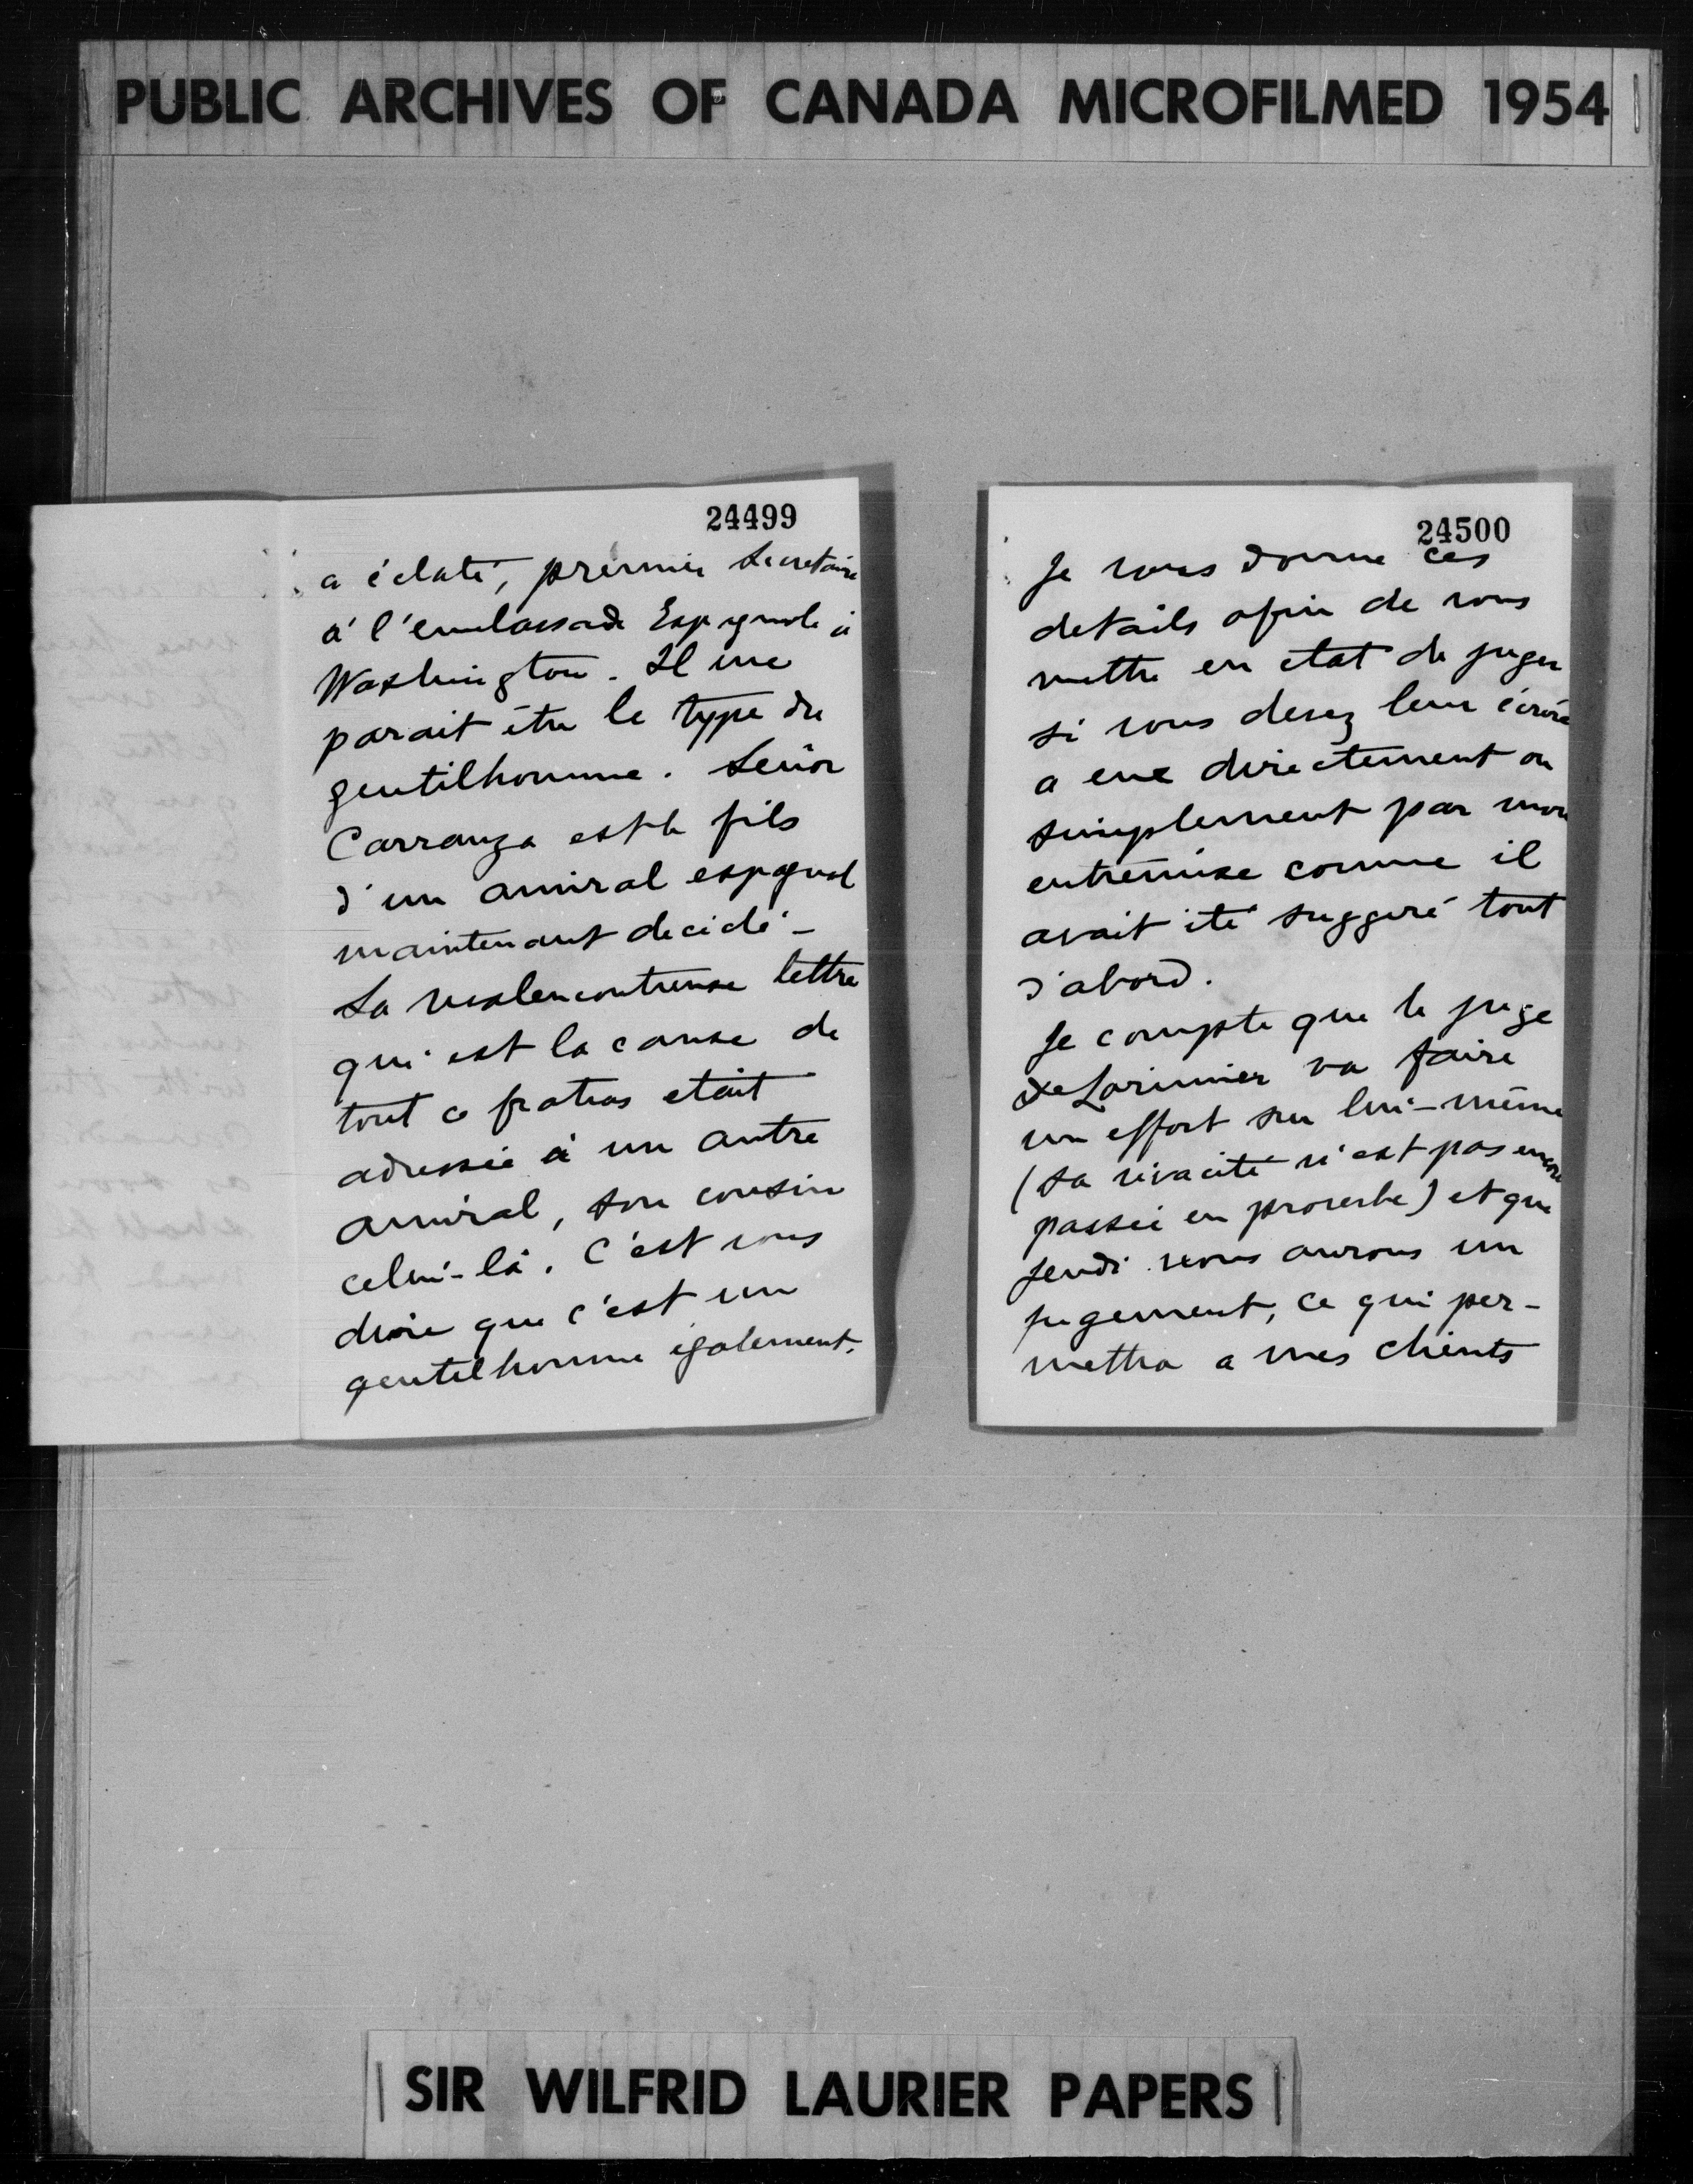 PUBLIC ARCHIVES OF CANADA MICROFILMED 1954
24499
a éclaté, premier Secretaire
à l'embassade Espagnole à
Washington. Il me
parait être le type du
gentilhomme. Señor
Carranza est le fils
d'un amiral espagnol
maintenant decidé -
La malencontreuse lettre
qui est la cause de
tout ce fratras etait
adressée à un autre
amiral, son cousin
celui-là. C'est vous
dire que c'est un
gentilhomme également.
24500
Je vous donne ces
details afin de vous
mettre en etat de juger
si vous devez leur écrire
a eux directement ou
simplement par mon
entremise comme il
avait été suggeré tout
d'abord.
Je compte que le juge
de Lorimier va faire
un effort sur lui-même
(sa vivacité n'est pas encore
passée en proverbe) et que
jeudi nous aurons un
jugement, ce qui per-
mettra a mes clients
SIR WILFRID LAURIER PAPERS